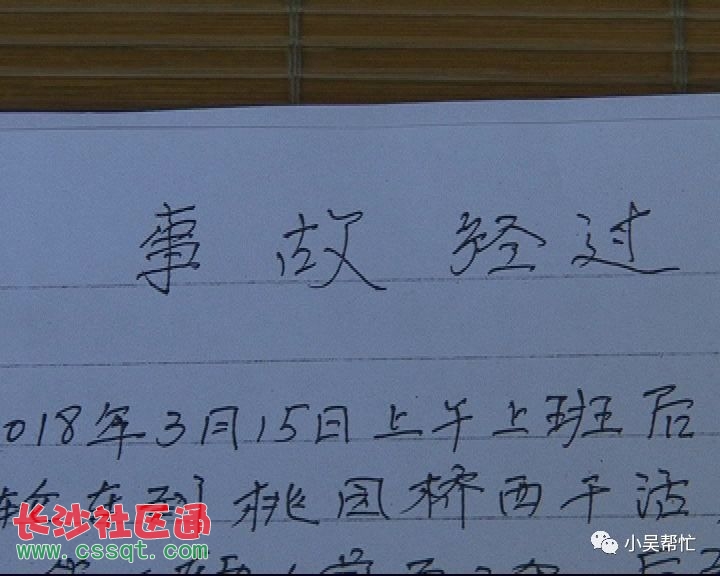 事故经过
018年3月15日上午上班后
到桃园桥西干活
长沙社区通
www.cssqt.com
小吴帮忙